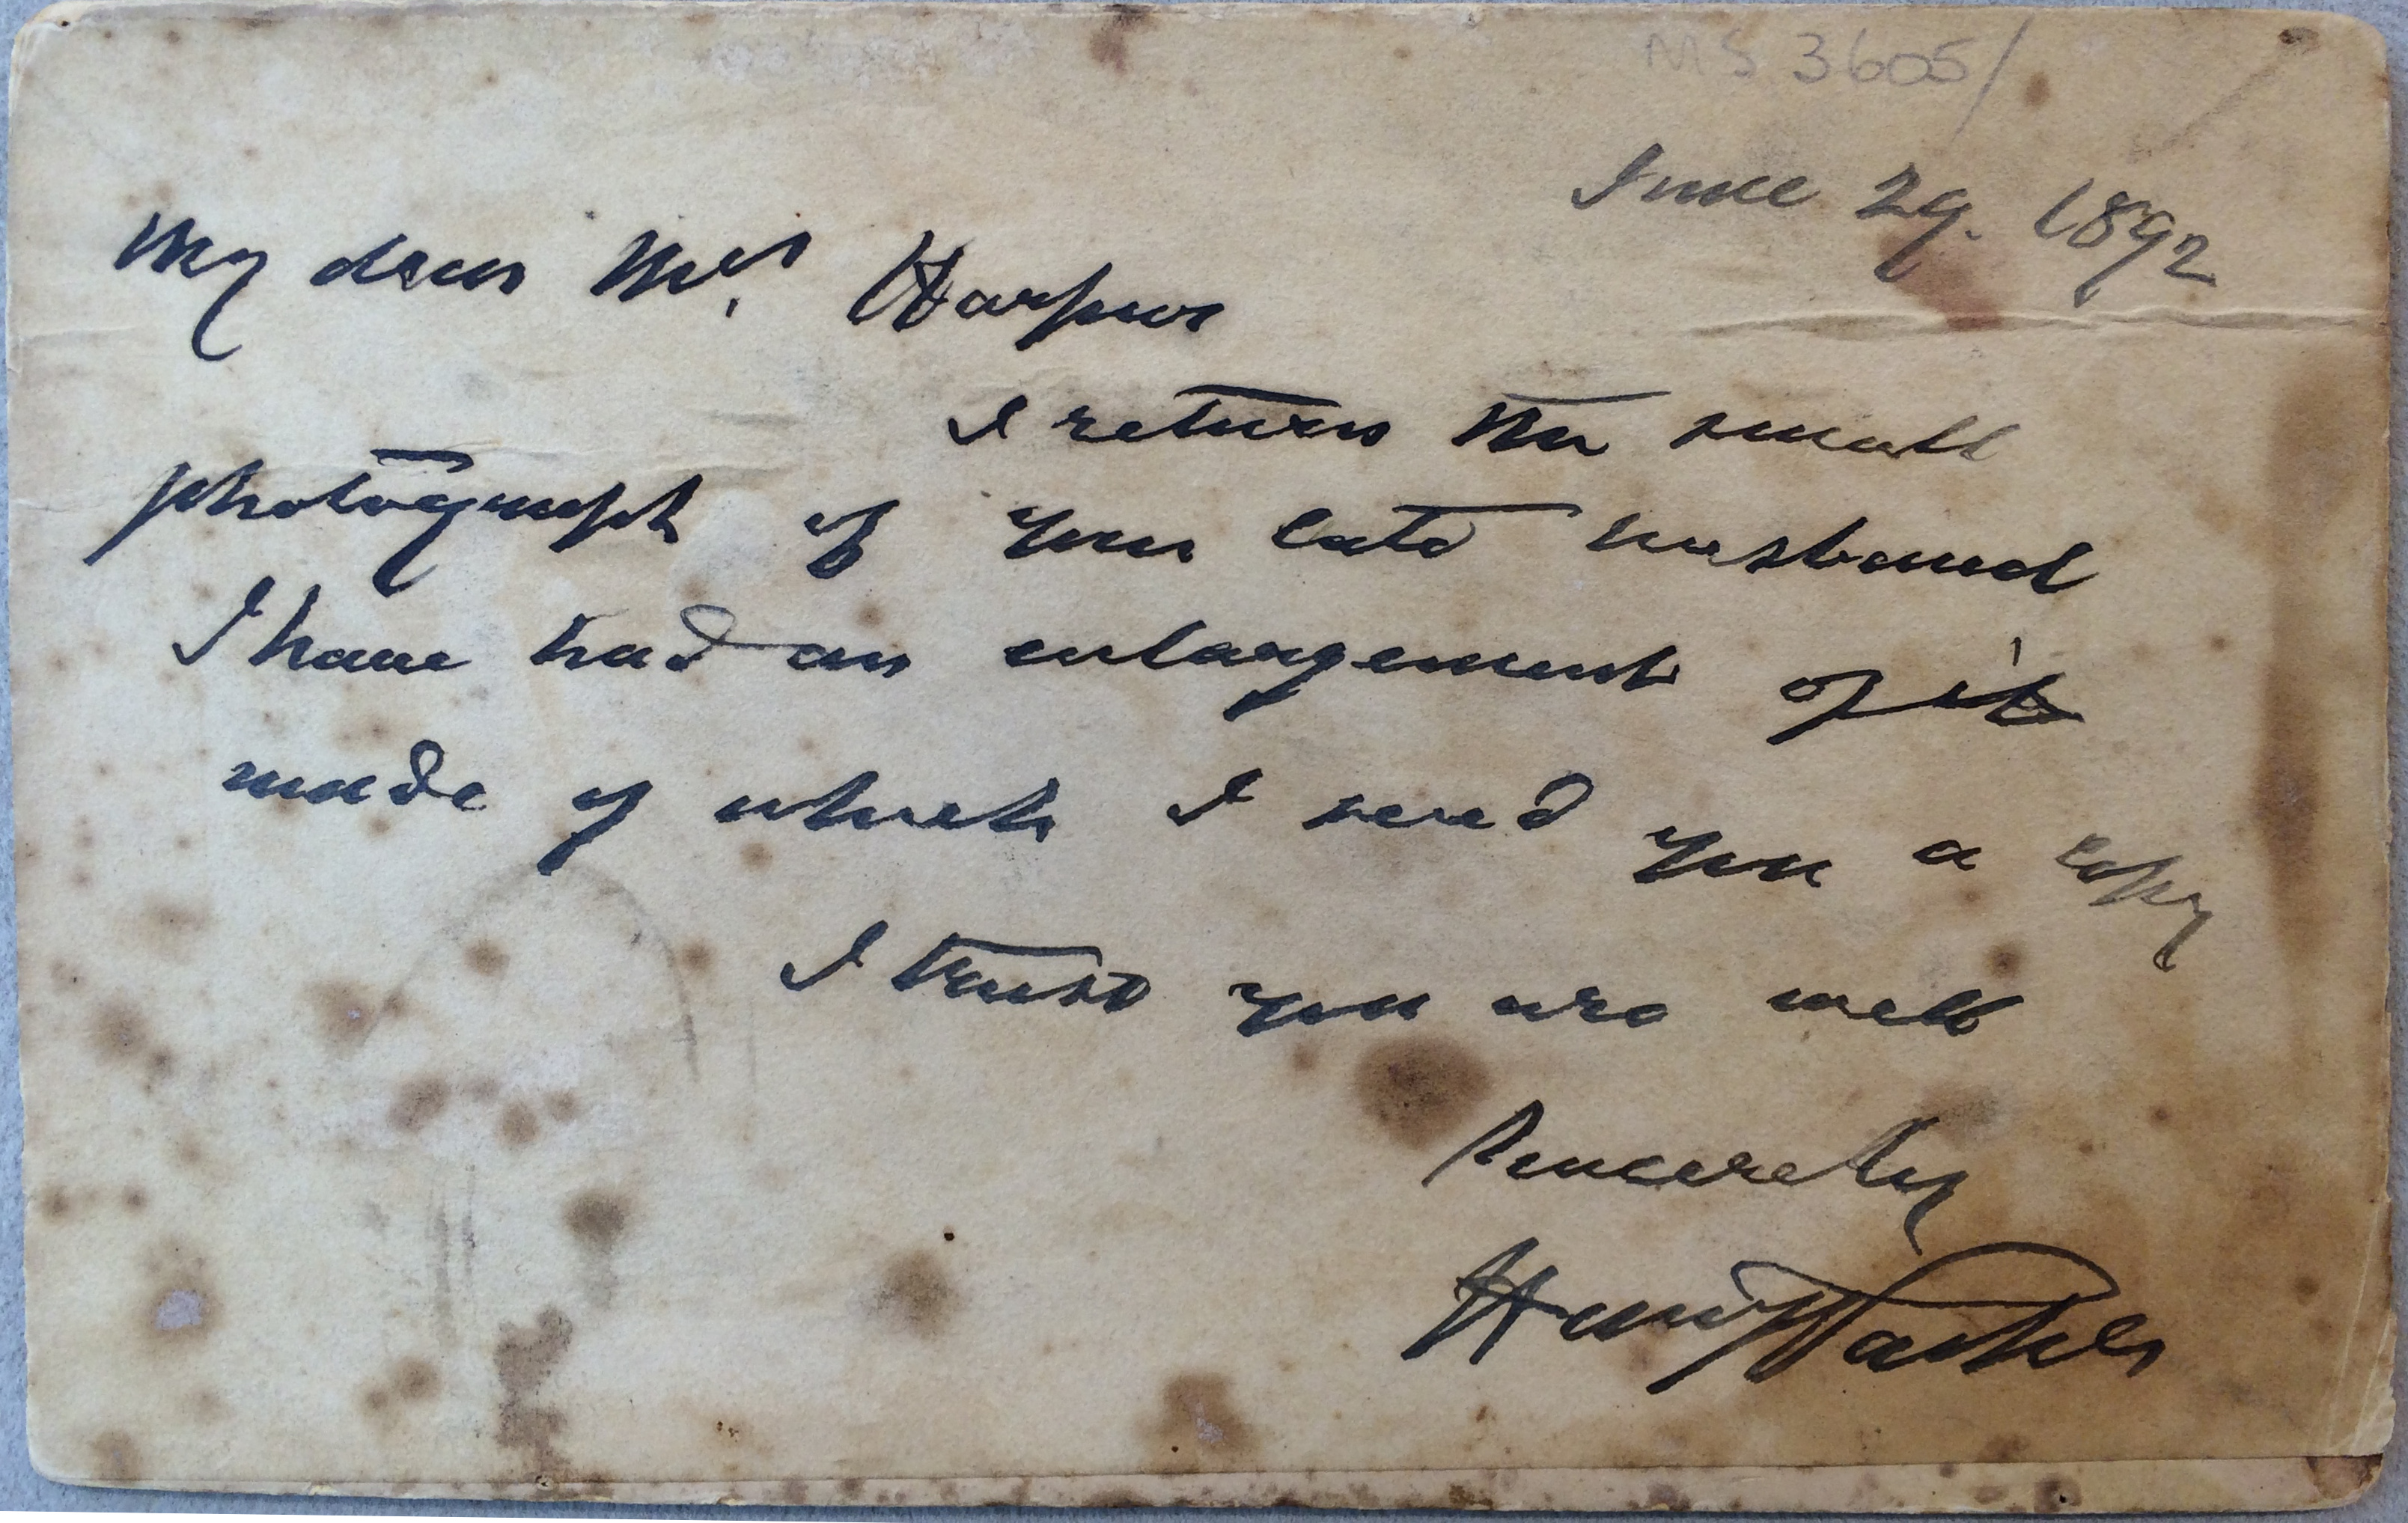 MS 3605/
June 29. 1892
My dear Mrs Harpur
I return the small
photograph of your late husband
I have had an enlargement of it
made of which I send you a copy
I trust you are well
Sincerely
Henry Parkes